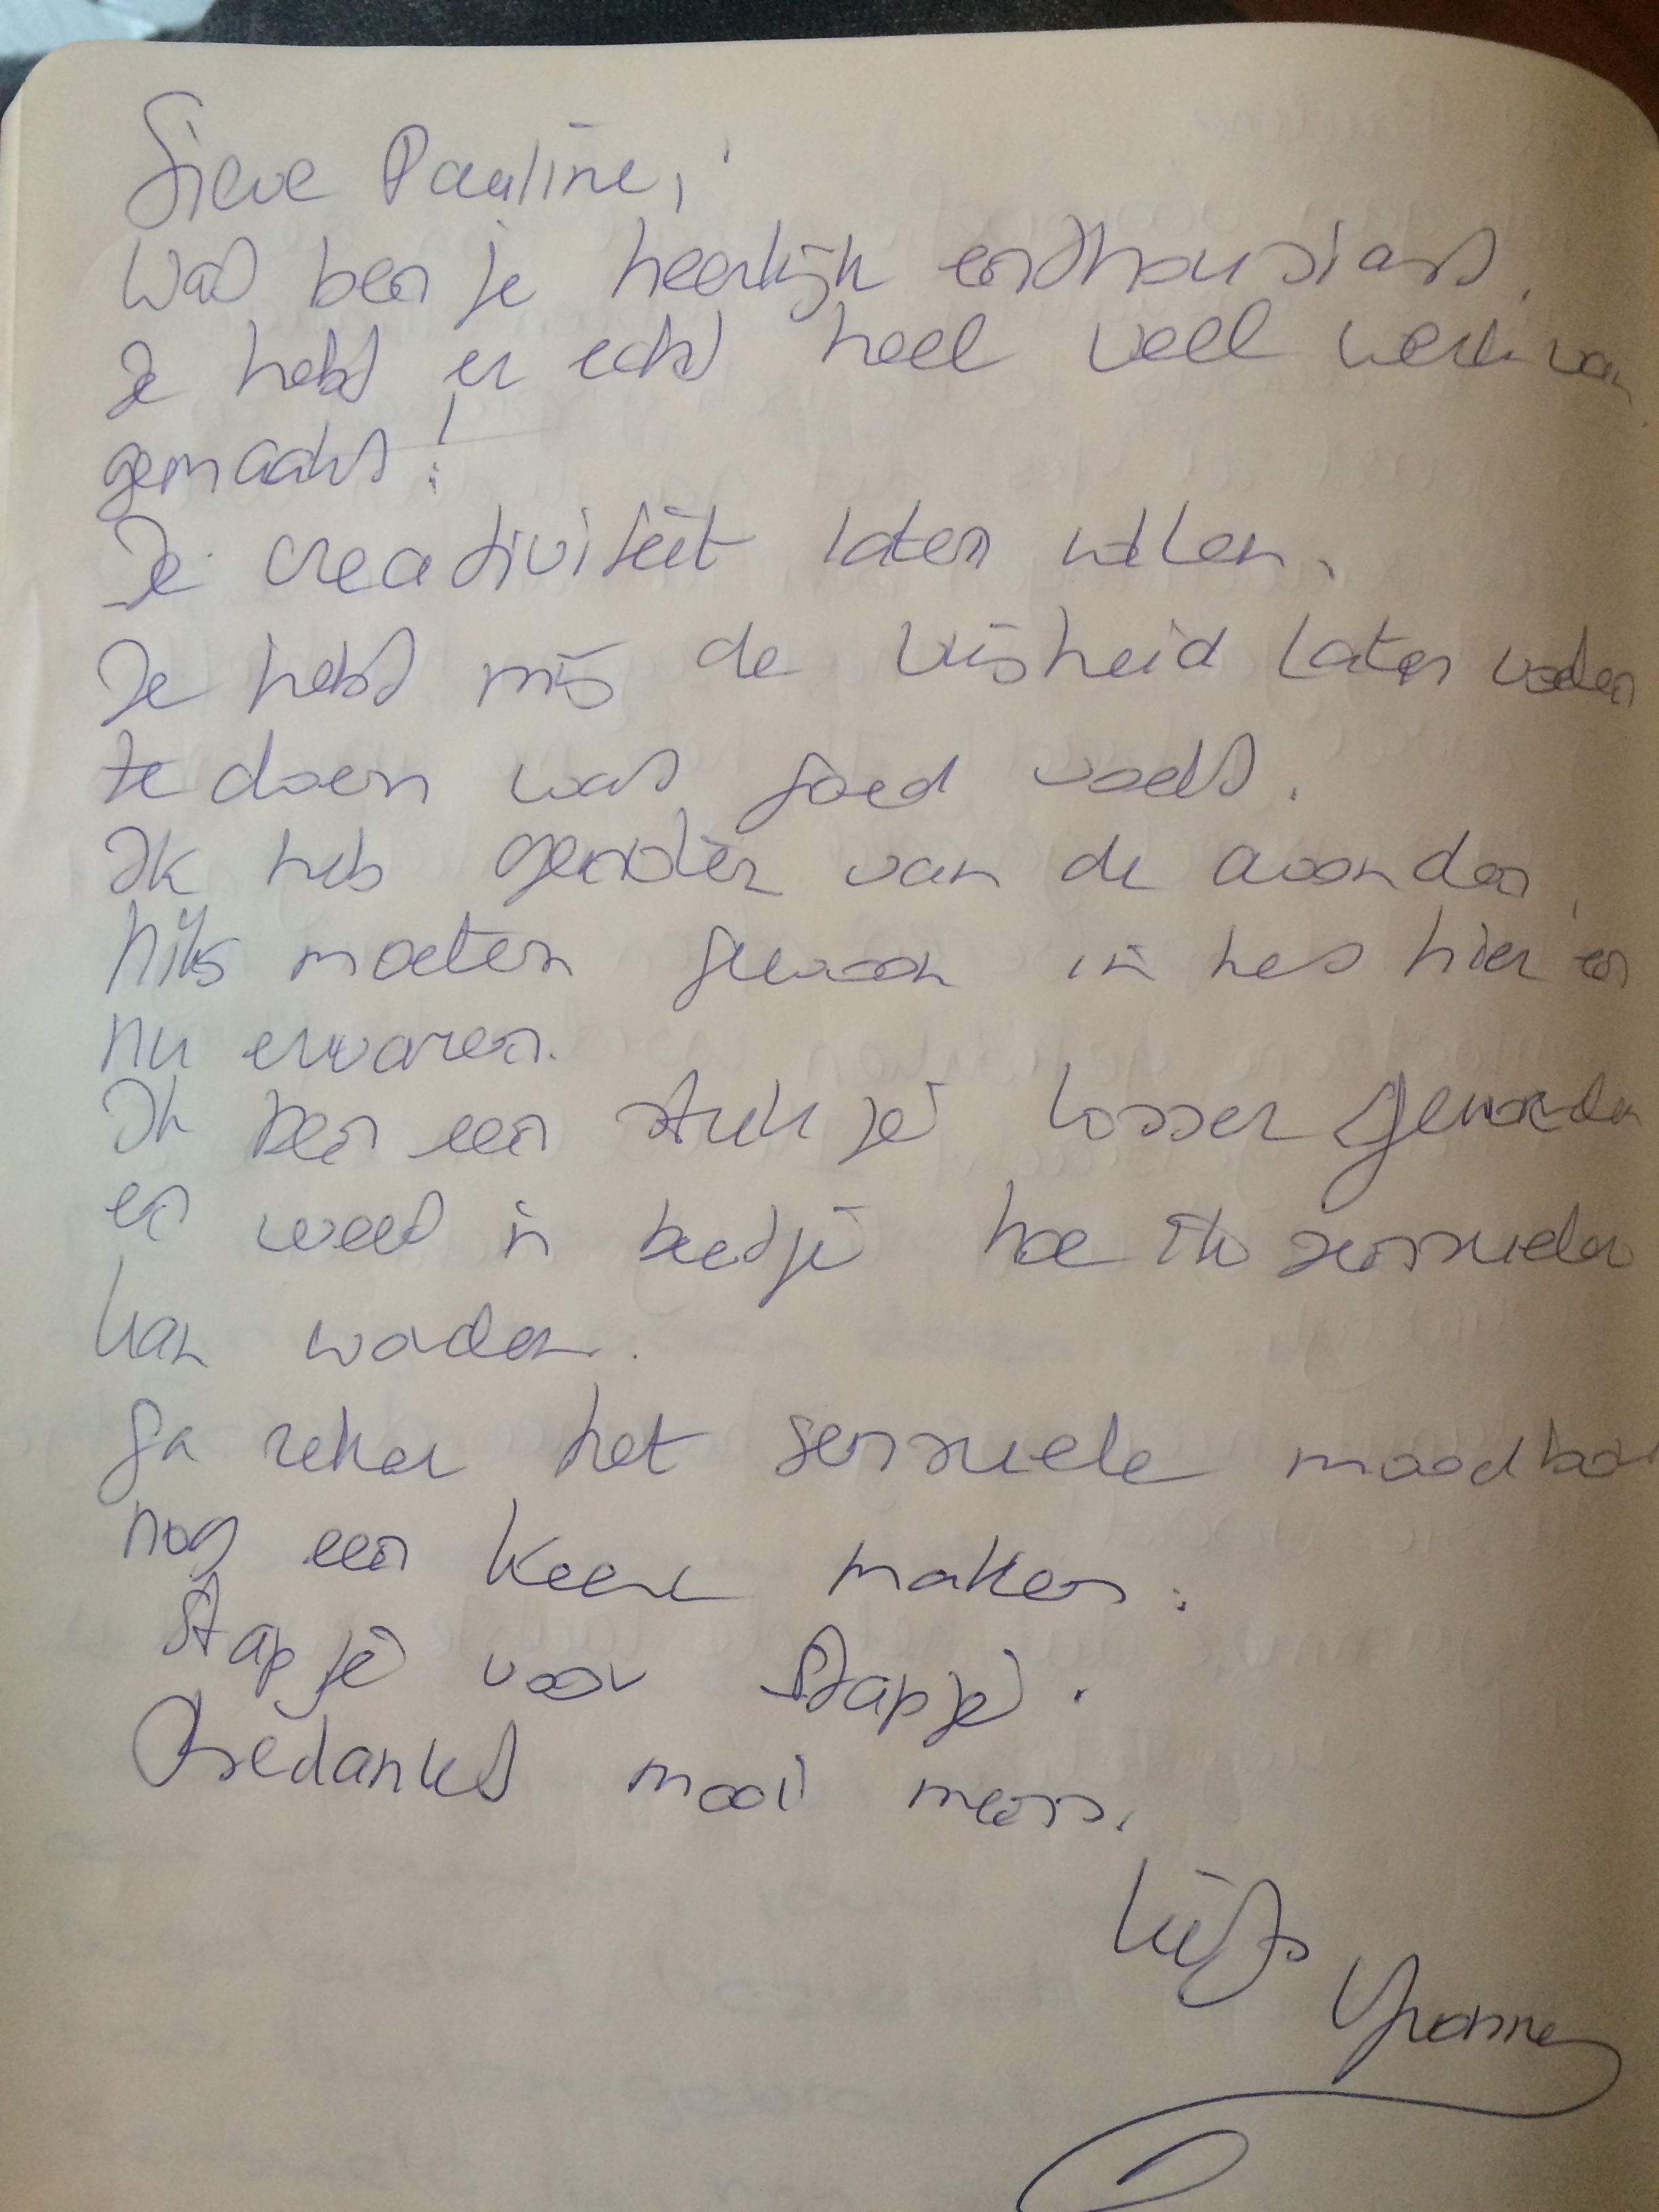 Lieve Pauline,
Wat ben je heerlijk enthousiast.
Je hebt er echt heel veel werk van
gemaakt!
Je creativiteit laten
Je hebt mij de vrijheid laten voelen
te doen wat goed voelt.
Ik heb genoten van de avonden,
Niks moeten gewoon in het hier en
nu ervaren.
Ik ben een stukje losser geworden
en weet n beetje hoe ik sensueler
kan worden.
Ga zeker het sensuele
nog een keer maken.
Stapje voor Stapje.
Bedankt mooi mens.
Liefs
Yvonne